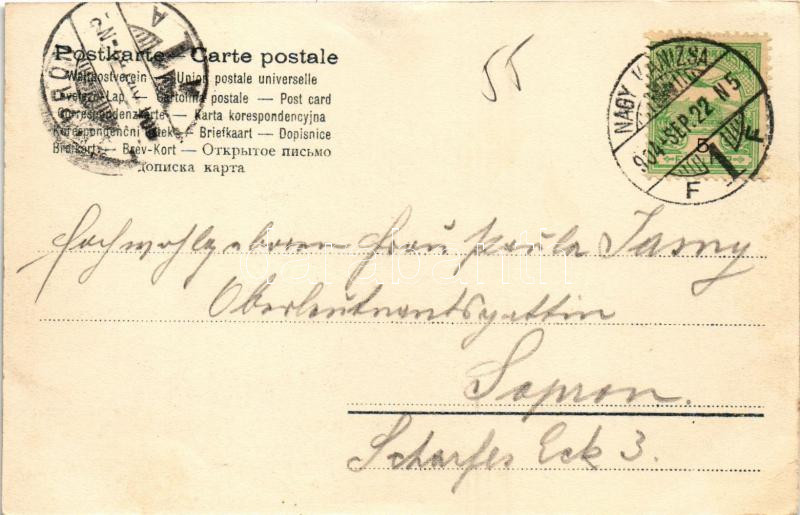 Postkarte — Carte postale
Weltpostverein — Union postale universelle
Levelező-Lap — Cartolina postale — Post card
Correspondenzkarte — Karta korespondencyjna
Korespondenční lístek — Briefkaart — Dopisnice
Brefkort — Brev-Kort — Открытое письмо
дописка карта
55
NAGY KANIZSA
904 SEP. 22 N5
F 1 F
5
Hochwohlgeboren Frau Paula
Oberleutnantsgattin
Sopron.
Scharfes Eck 3.
darabanth